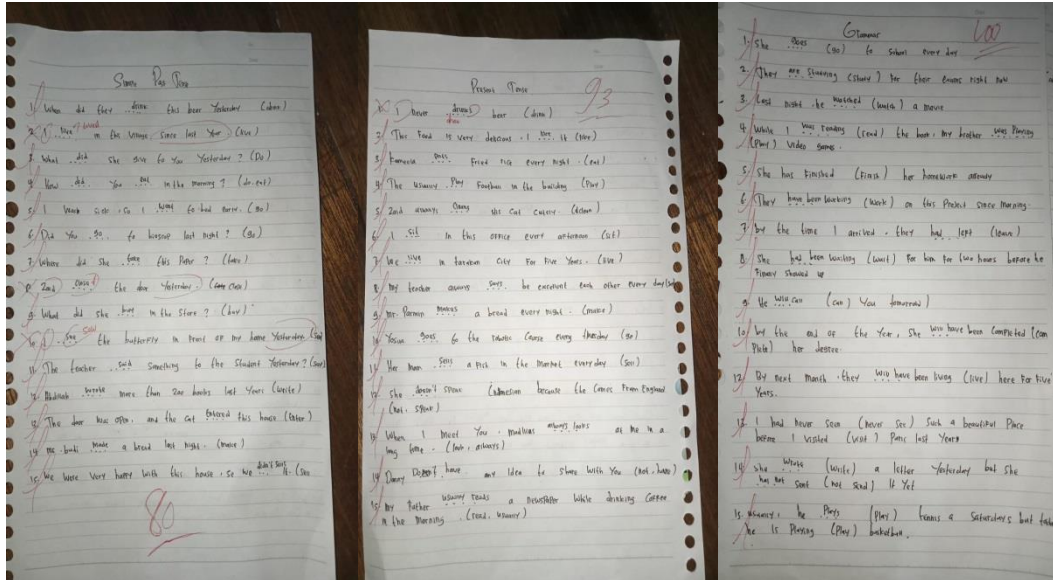 Simple Past Tense
1. When did they drink this beer Yesterday (drink)
2. I live lived in this village, since last Year (live)
3. What did She give to You Yesterday? (Do)
4. How did You eat in the morning? (do-eat)
5. I was sick, so I went to bed early. (go)
6. Did You go to last night? (go)
7. Where did She take this Paper? (take)
8. Zaid the door Yesterday. (close)
9. What did she buy in the Store? (buy)
10. I see saw the butterfly in front of my home Yesterday (see)
11. The teacher said Something to the Student Yesterday? (say)
12. Abdillah wrote more than 200 books last Years (write)
13. The door was open, and the Cat entered this house (enter)
14. made a bread last night. (make)
15. We were Very happy with this house, so we didn't sell it. (see
80
Present Tense
93
1. I never drinks drink beer (drink)
2. This Food is very delicious. I like it (like)
3. eats Fried rice every night. (eat)
4. The usually Play Football in the building (Play)
5. Zaid always his Cat (clean)
6. I sit in this office every afternoon (sit)
7. We live in City For Five Years. (live)
8. My teacher always says be excellent each other every day (say
9. Mr. makes a bread every night. (make)
10. goes to the course every thursday (go)
11. Her mom sells a Pick in the Market every day (Sell)
12. She doesn't speak because the comes From England
(not, speak)
13. When I meet You always looks at me in a
long time. (look, always)
14. Danny Doesn't have any Idea to share with You (not, have)
15. My Father usually reads a newspaper While drinking Coffee
in the morning. (read, usually)
Grammar
100
1. She goes (go) to School every day
2. They are Studying (study) For their Exams right now
3. Last night, he watched (watch) a movie
4. While I was reading (read) the book, my brother was Playing
(Play) Video games.
5. She has Finished (Finish) her homework already
6. They have been working (work) on this Project Since morning.
7. by the time I arrived, they had left (leave)
8. She had been waiting (wait) For him For two hours before he
Finally showed up
9. He will can (can) You tomorrow)
10. by the end of the Year, She will have been Completed (Com
Plete) her degree.
12. By next month, they will have been living (live) here For Five
Years.
13. I had never seen (never see) Such a beautiful Place
before I visited (visit) Paris last Years
14. She wrote (write) a letter Yesterday but She
has not sent (not send) It Yet
15. usually, he Plays (Play) tennis a Saturdays but
he is Playing (Play) basketball.